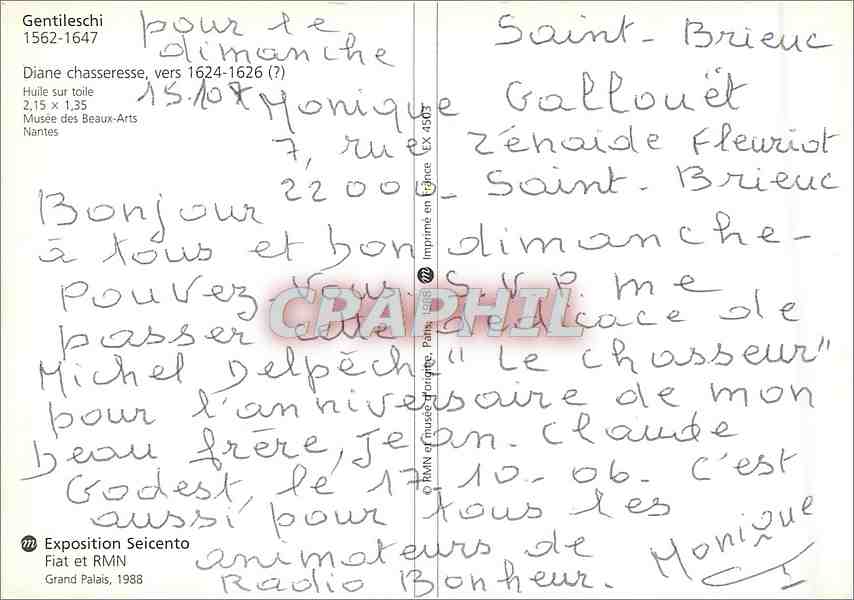 Gentileschi
1562-1647
Diane chasseresse, vers 1624-1626 (?)
Huile sur toile
2,15 x 1,35
Musée des Beaux-Arts
Nantes
pour le
dimanche
15.10
Saint-Brieuc
Monique Gallouët
7, rue Zénaïde Fleuriot
22000 - Saint-Brieuc
Bonjour
à tous et bon dimanche -
Pouvez-vous S.V.P me
passer cette dédicace de
Michel Delpêche "Le chasseur"
pour l'anniversaire de mon
beau frère, Jean-Claude
Godest, le 17-10-06. C'est
aussi pour tous les
animateurs de
Radio Bonheur.
Monique
Exposition Seicento
Fiat et RMN
Grand Palais, 1988
© RMN et musée d'origine, Paris, 1988
Imprimé en France EX 4503
CRAPHIL